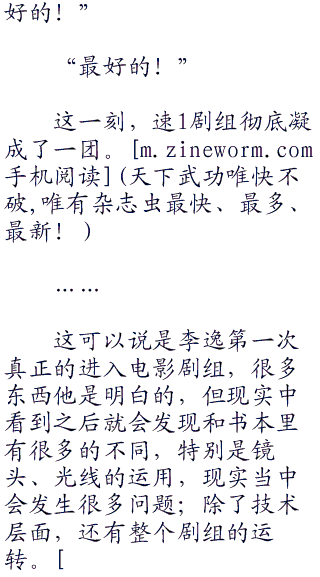 好的！”
“最好的！”
这一刻，速1剧组彻底凝
成了一团。[m.zineworm.com
手机阅读](天下武功唯快不
破,唯有杂志虫最快、最多、
最新！ )
……
这可以说是李逸第一次
真正的进入电影剧组，很多
东西他是明白的，但现实中
看到之后就会发现和书本里
有很多的不同，特别是镜
头、光线的运用，现实当中
会发生很多问题；除了技术
层面，还有整个剧组的运
转。[